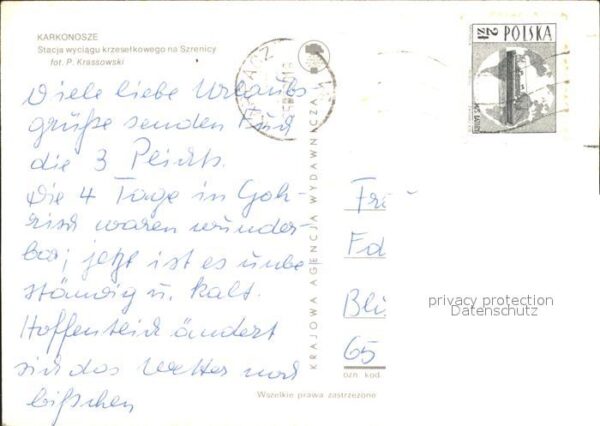 KARKONOSZE
Stacja wyciągu krzesełkowego na Szrenicy
fot. P. Krassowski
Viele liebe Urlaubs
grüße senden Euch
die 3
Die 4 Tage in Goh-
risch waren wunder-
bar; jetzt ist es unbe
ständig u. kalt.
Hoffentlich ändert
sich das Wetter noch
bißchen
KRAJOWA AGENCJA WYDAWNICZA
2 zł
POLSKA
Fr
Fa
Bli
65
ozn. kod.
Wszelkie prawa zastrzeżone
privacy protection
Datenschutz